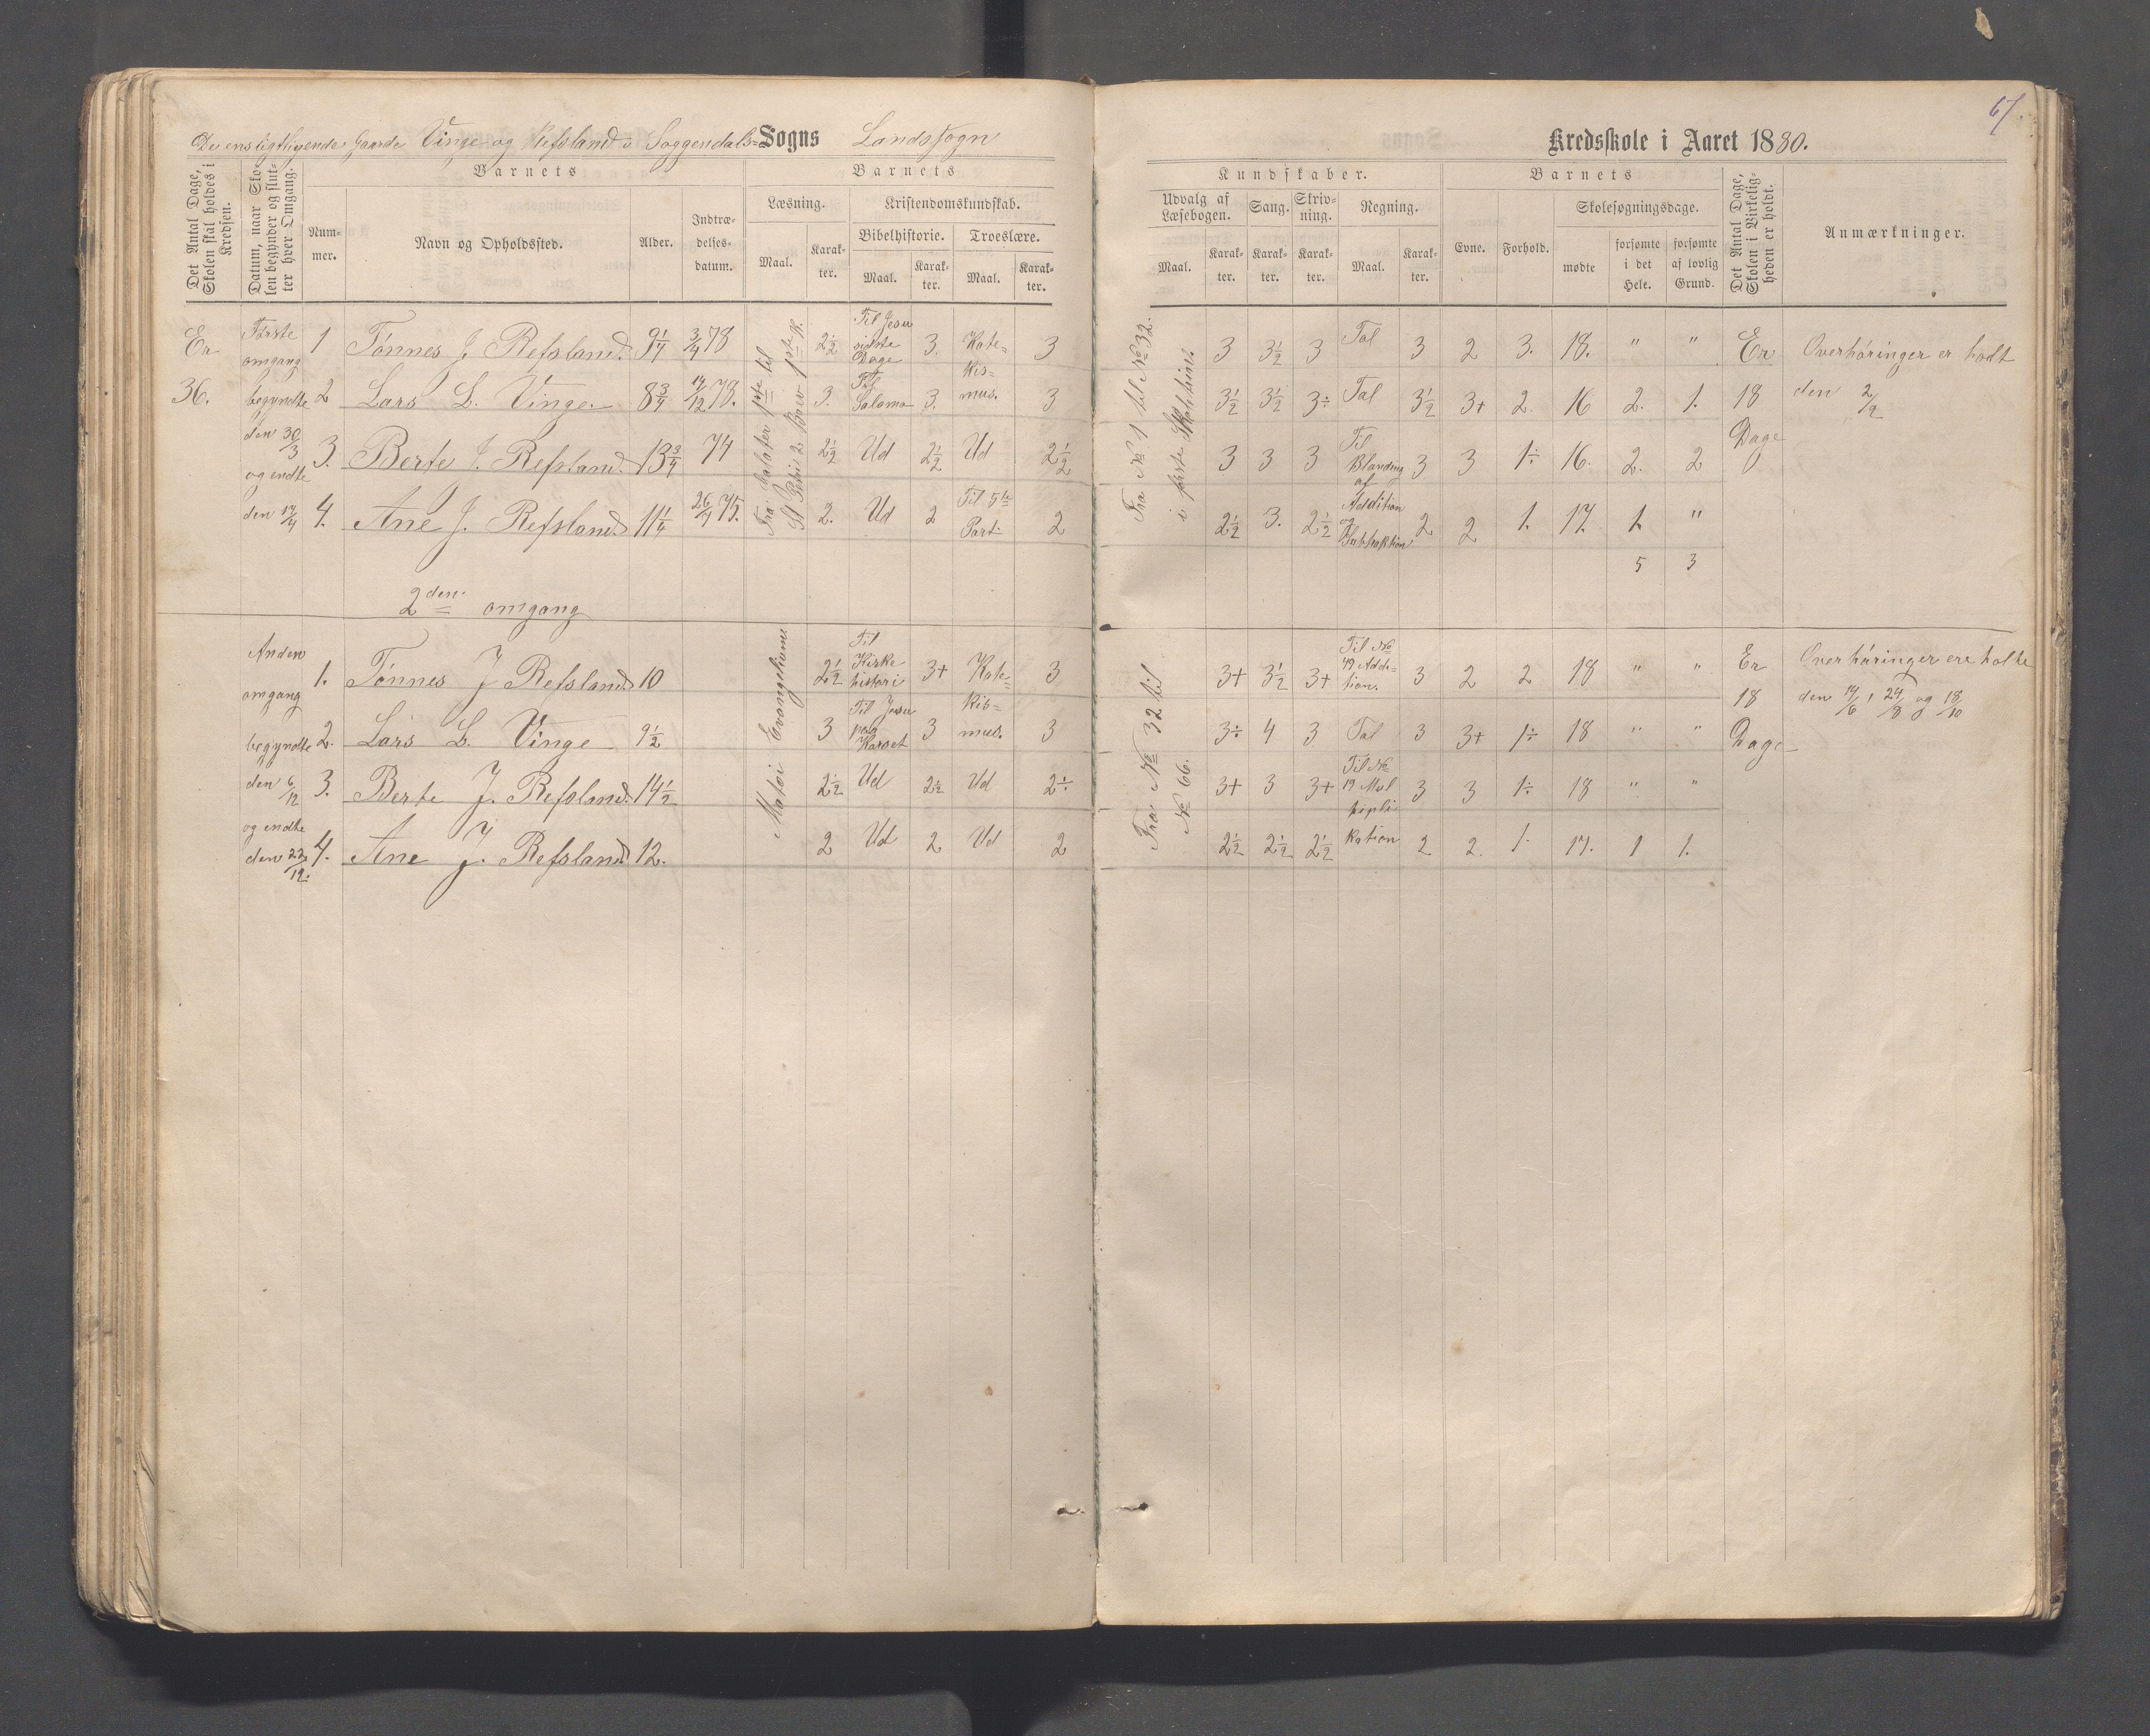 67.
De ensligtliggende Gaarde Vinge og Refsland i Soggendals= Sogns Landssogn
Kredsskole i Aaret 1880.
Det Antal Dage, Skolen skal holdes i Kredsen.
Datum, naar Skolen begynder og slutter hver Omgang.
Barnets
Nummer.
Navn og Opholdssted.
Alder.
Indtrædelsesdatum.
Barnets
Læsning.
Maal.
Karakter.
Kristendomskundskab.
Bibelhistorie.
Maal.
Karakter.
Troeslære.
Maal.
Karakter.
Kundskaber.
Udvalg af Læsebogen.
Maal.
Karakter.
Sang.
Karakter.
Skrivning.
Karakter.
Regning.
Maal.
Karakter.
Barnets
Evne.
Forhold.
Skolesøgningsdage.
mødte
forsømte i det Hele.
forsømte af lovlig Grund.
Det Antal Dage, Skolen i Virkeligheden er holdt.
Anmærkninger.
Er
36.
Første
omgang
begyndte
den 30/3
og endte
den 17/4
Fra Galater 1ste til
St Petri 2 Brev 1ste K.
Fra No 1 til No 32.
i første
1 Tønnes J. Refsland. 9 1/4 3/4 78 2 1/2 Til Jesu sidste Dage 3. Kate= 3 3 3 1/2 3 Tal 3 2 3. 18. " "
2 Lars L. Vinge. 8 3/4 17/12 78. 3. Til Salomo 3. kis= mus. 3 3 1/2 3 1/2 3÷ Tal 3 1/2 3+ 2. 16 2. 1.
3. Berte J. Refsland. 13 3/4 74 2 1/2 Ud 2 1/2 Ud 2 1/2 3 3 3 Til Blanding af 3 3 1÷ 16. 2. 2
4. Ane J. Refsland. 11 1/4 26/4 75. 2. Ud 2 Til 5te Part 2 2 1/2 3. 2 1/2 Addition og Subtraktion 2 2 1. 17. 1 "
5 3
Er
18
Dage
Overhøringer er hodt
den 2/2
2den omgang
Anden
omgang
begyndte
den 6/12
og endte
den 23/12.
Matæi Evangelium
Fra No 32 til
No 66.
1. Tønnes J Refsland. 10 2 1/2 Til Kirke histori 3+ Kate= 3 3+ 3 1/2 3+ Til No 49 Addi= tion. 3 2 2 18 " "
2. Lars L. Vinge 9 1/2 3 Til Jesu paa Korset 3 kis= mus. 3 3÷ 4 3 Tal 3 3+ 1÷ 18 " "
3. Berte J. Refsland. 14 1/2 2 1/2 Ud 2 1/2 Ud 2÷ 3+ 3 3+ Til No 19 Mul tipli 3 3 1÷ 18 " "
4. Ane J. Refsland 12. 2 Ud 2 Ud 2 2 1/2 2 1/2 2 1/2 kation 2 2. 1. 17. 1 1.
Er
18
Dage
Overhøringer ere holte
den 14/6, 24/8 og 18/10